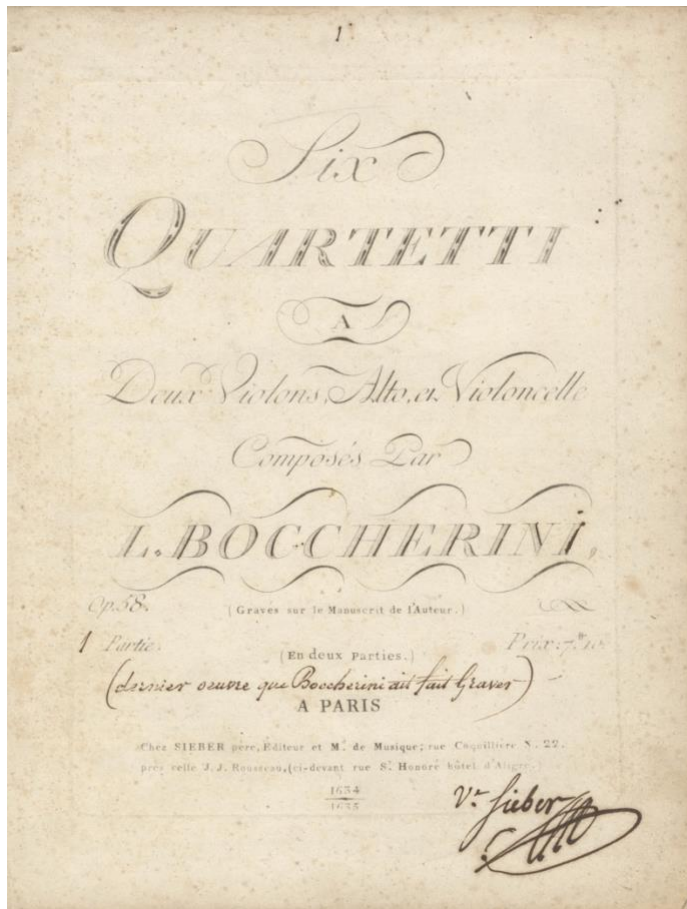 1
Six
QUARTETTI
A
Deux Violons, Alto, et Violoncelle
Composés Par
L. BOCCHERINI,
Op. 58.
(Gravés sur le Manuscrit de l'Auteur.)
1 Partie. Prix 7
(En deux Parties.)
(dernier œuvre que Boccherini ait fait Graver)
A PARIS
Chez SIEBER père, Éditeur et Md. de Musique; rue Coquillière N. 22.
près celle J. J. Rousseau, (ci-devant rue St. Honoré hôtel d'Aligre.)
1634
1635
Vr. Sieber